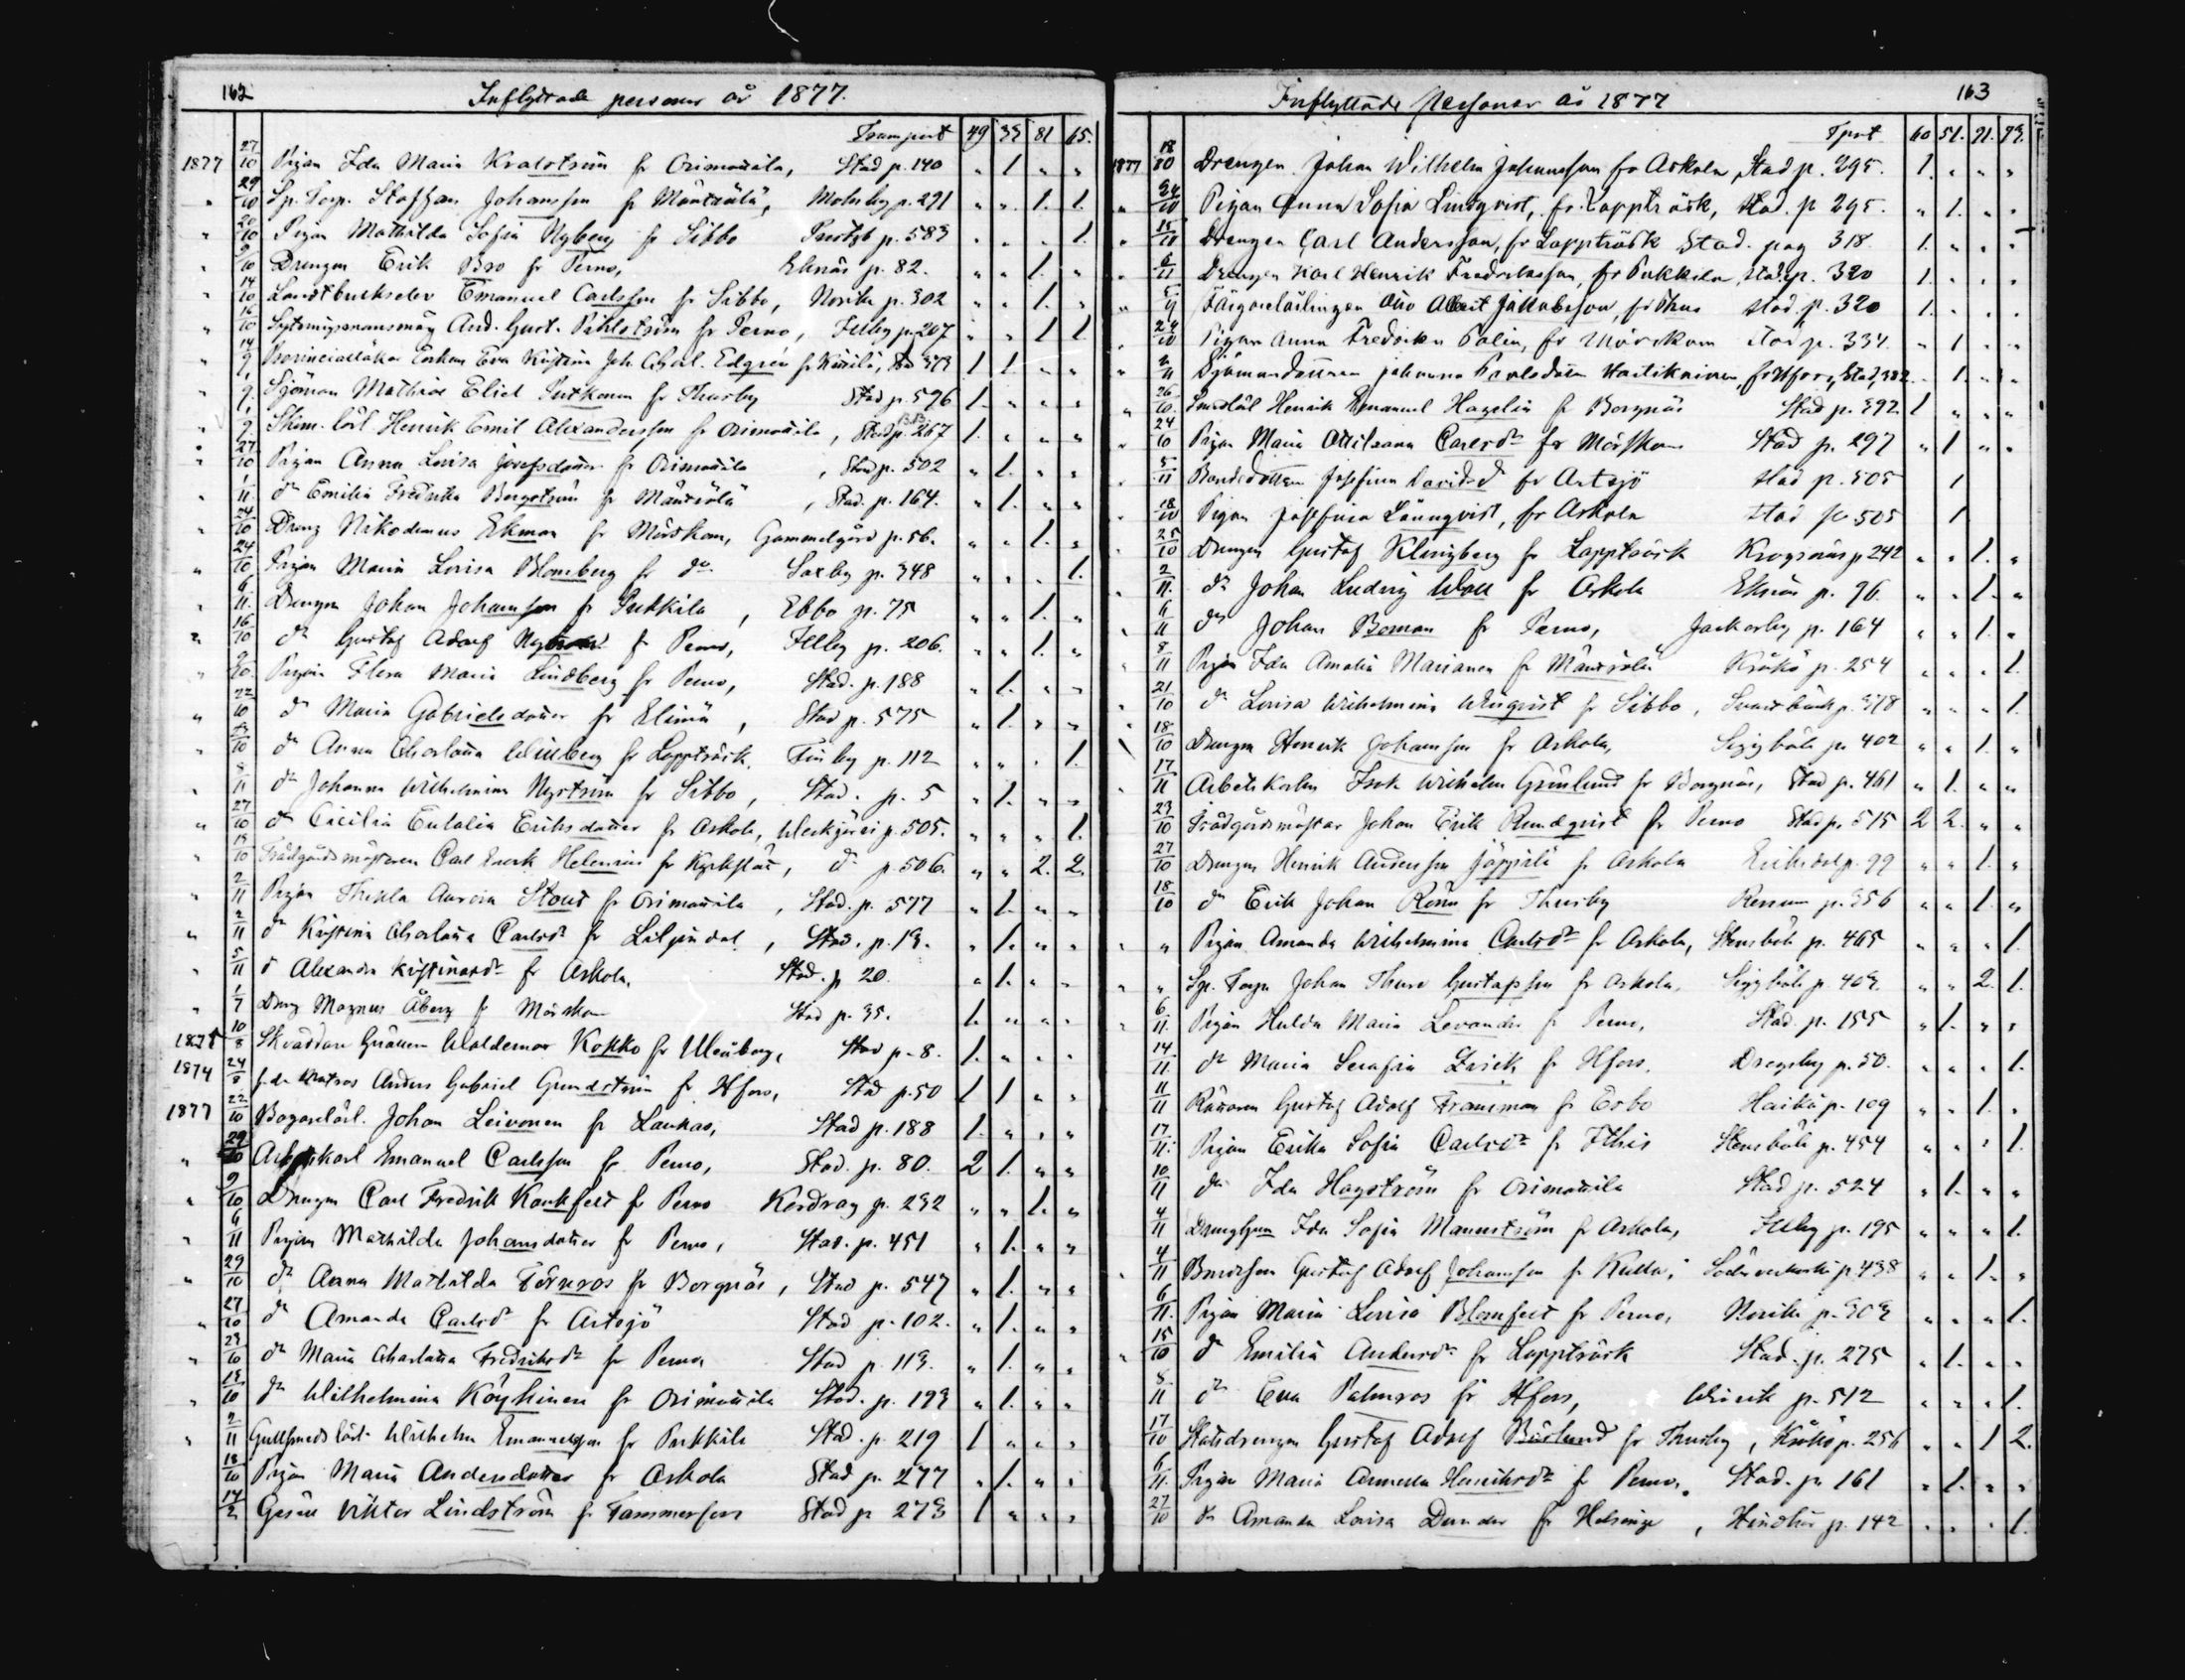 162 Inflyttade personer år 1877.
Transport 49 33 81 65.
1877 27/10 Pigan Ida Maria Kralström fr Orimattila, Stad p. 140 " 1 " "
" 29/10 Sp. Torp. Staffan Johansson fr Mäntsälä, p. 291 " " 1. 1.
" 20/10 Pigan Mathilda Sofia Nyberg fr Sibbo p. 583 " " " 1.
" 9/10 Drengen Erik Bro fr Perno, Eknäs p. 82. " " 1. "
" 14/10 Emanuel Carlsson fr Sibbo, Norike p. 302 " " 1. "
" 16/10 And. Gust. Pihlström fr Perno, Illby p. 207 " " 1 1
" 14/9 Enkan Eva Kristina Joh. Charl. Edgren fr 1 1 " "
" 1/9 Sjöman Mathias Eliel fr Thusby Stad p. 596 1. " " "
" 1/9 lärl Henrik Emil Alexandersson fr Orimattila, Stad p. 267 1. " " "
" 27/10 Pigan Anna Lovisa Josefsdotter fr Orimattila, Stad p. 502 " 1. " "
" 1/11 do Emilia Fredrika Bergström fr Mäntsälä, Stad. p. 164. " 1. " "
" 24/10 Dreng Nikodemus Ekman fr Mörskom, Gammelgård p. 56. " " 1. "
" 24/10 Pigan Maria Lovisa Blomberg fr do Saxby p. 348 " " " 1.
" 6/11. Drengen Johan Johansson fr Pukkila, Ebbo p. 75 " " 1. "
" 16/10 do Gustaf Adolf fr Perno, Illby p. 206. " " 1. "
" 9/10. Pigan Flora Maria Lindberg fr Perno, Stad. p. 188 " 1. " "
" 22/10 do Maria Gabrielsdotter fr Elimä, Stad p. 575 " 1. " "
" 23/10 do Anna Charlotta Winberg fr Lappträsk, Finby p. 112 " " " 1.
" 8/11 do Johanna Wilhelmina Nyström fr Sibbo, Stad. p. 5 " 1. " "
" 27/10 do Cicilia Eulalia Eriksdotter fr Askola, Weckjärvi p. 505. " " " 1.
" 19/10 Trädgårdsmästaren Carl Henrik Helenius fr Kyrkslätt, do p. 506. " " 2. 2.
" 2/11 Pigan Thekla Aurora Stout fr Orimattila, Stad. p. 577 " 1. " "
" 2/11 do Kristina Charlotta Carlsdr fr Liljendal, Stad. p. 13. " 1. " "
" 5/11 d Alexandra Kristinasdr fr Askola, Stad. p 20. " 1. " "
" 1/7 Dreng Magnus Åberg fr Mörskom Stad p. 35. 1. " " "
1875 10/8 Skräddare Gesällen Woldemar Kokko fr Uleåborg, Stad p. 8. 1. " " "
1874 24/8 f.d. Matros Anders Gabriel Grundström fr Hfors, Stad p. 50 1 1 " "
1877 22/10 Bagarelärl. Johan Leivonen fr Laukas, Stad p. 188 1. " " "
" 29/10 Arbetskarl Emanuel Carlsson fr Perno, Stad. p. 80. 2 1. " "
" 9/10 Drengen Carl Fredrik Kankfelt fr Perno Kerdrag p. 232 " " 1. "
" 6/11 Pigan Mathilda Johansdotter fr Perno, Stad. p. 451 " 1. " "
" 29/10 do Anna Mathilda Törnros fr Borgnäs, Stad p. 547 " 1. " "
" 27/10 do Amanda Carlsdr fr Artsjö Stad p. 102. " 1. " "
" 23/10 do Maria Charlotta Fredriksdr fr Perno Stad p. 113. " 1. " "
" 13/10 do Wilhelmina Köykinen fr Orimattila Stad. p. 193 " 1. " "
" 2/11 Gullsmedslärl. Wilhelm Emanuelsson fr Pukkila Stad. p. 219 1 " " "
18/10 Pigan Maria Andersdotter fr Askola Stad p. 277 " 1. " "
17/2 Gesäll Viktor Lindström fr Tammerfors Stad p 273 1 " " "
Inflyttade Personer år 1877 163
Tprt 60 51. 91. 79.
1877 18/10 Drengen Johan Wilhelm Johansson fr Askola, Stad p. 295. 1. " " "
" 24/10 Pigan Anna Sofia Lindqvist, fr. Lappträsk, Stad. p 295. " 1. " "
" 15/10 Drengen Carl Andersson, fr Lappträsk Stad. pag 318. 1. " " "
" 6/11 Drengen Karl Henrik Fredriksson, fr Pukkila, Stad p. 320 1. " " "
" 5/9 Färgarelärlingen Otto Albert Jakobsson, fr Åbo Stad p. 320 1. " " "
" 29/10 Pigan Anna Fredrika Palin, fr Mörskom Stad p. 334. " 1 " "
" 2/11 Sjömandottren Johanna Karlsdotter fr Hfors, Stad, 382. " 1. " "
" 26/10. Henrik Emanuel Hagelin fr Borgnäs Stad p. 392. 1 " " "
" 24/10 Pigan Maria Carlsdr fr Mörskom Stad p. 297 " 1 " "
" 5/11 Bondedottern Josefina Davidsd fr Artsjö Stad p. 505 1
" 18/10 Pigan Josefina Lönnqvist, fr Askola Stad p 505 1
" 25/10 Drengen Gustaf Klingberg fr Lappträsk Krogsnäs p 242 " " 1. "
" 2/11. do Johan Ludvig Wall fr Askola Eknäs p. 96. " " 1. "
" 6/11 do Johan Boman fr Perno, Jackarby p. 164 " " 1. "
" 8/11 Pigan Ida Amalia Marianen fr Mäntsälä Kråkö p. 254 " " " 1.
" 21/10 do Lovisa Wilhelmina Winqvist fr Sibbo, Svartbäck p. 378 " " " 1.
18/10 Drengen Henrik Johansson fr Askola, Siggböle p. 402 " " 1. "
" 17/11 Arbetskarlen Isak Wilhelm Grönlund fr Borgnäs, Stad p. 461 " 1. " "
23/10 Trädgårdsmästar Johan Erik Rundqvist fr Perno Stad p. 515 2 2. " "
27/10 Drengen Henrik Andersson Jäppilä fr Askola Eriksdal p. 99 " " 1. "
18/10 do Erik Johan Renn fr Thusby Renum p. 356 " " 1. "
" " Pigan Amanda Wilhelmina Carlsdr fr Askola, Stensböle p. 465 " " " 1.
" " Sp. Torp. Johan Thure Gustafsson fr Askola, Siggböle p. 403. " " 2. 1.
" 6/11. Pigan Hulda Maria Levander fr Perno, Stad. p. 155 " 1. " "
14/11. do Maria Serafia fr Hfors, Drägsby p. 50. " " " 1.
11/11 Rättaren Gustaf Adolf Fransman fr Esbo Haikå p. 109 " " 1. "
17/11. Pigan Erika Sofia Carlsdr fr Ithis Stensböle p. 454 " " " 1.
10/11 do Ida Hagström fr Orimattila Stad p. 524 " 1. " "
4/11 Ida Sofia Mannström fr Askola, Illby p. 195 " " " 1.
" 4/11 Gustaf Adolf Johansson fr Kulla, Söderveckoski p. 438 " " 1. "
6/11. Pigan Maria Lovisa Blomfelt fr Perno, Norike p. 303 " " " 1.
" 15/10 d Emilia Andersdr fr Lappträsk Stad. p. 275 " 1. " "
8/11 do Eva Palmros fr Hfors, p. 512 " " " 1.
17/10 Statsdrengen Gustaf Adolf Börlund fr Thusby, Kråkö p. 256 " " 1 2.
6/11. Pigan Maria Henriksdr fr Perno. Stad. p. 161 " 1. " "
27/10 do Amanda Lovisa Dunder fr Helsinge, Hindhår p. 142 " " " 1.